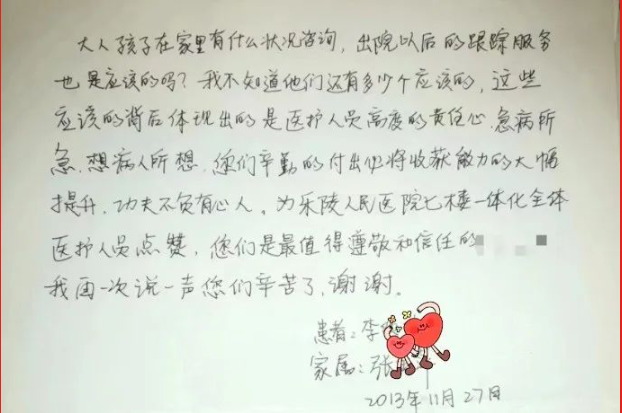 大人孩子在家里有什么状况咨询，出院以后的跟踪服务
也是应该的吗？我不知道他们还有多少个应该的，这些
应该的背后体现出的是医护人员高度的责任心，急病所
急，想病人所想，您们辛勤的付出必将收获能力的大幅
提升，功夫不负有心人。为乐陵人民医院七楼一体化全体
医护人员点赞，您们是最值得尊敬和信任的
我再一次说一声您们辛苦了，谢谢。
患者：李
家属：张
2013年11月27日